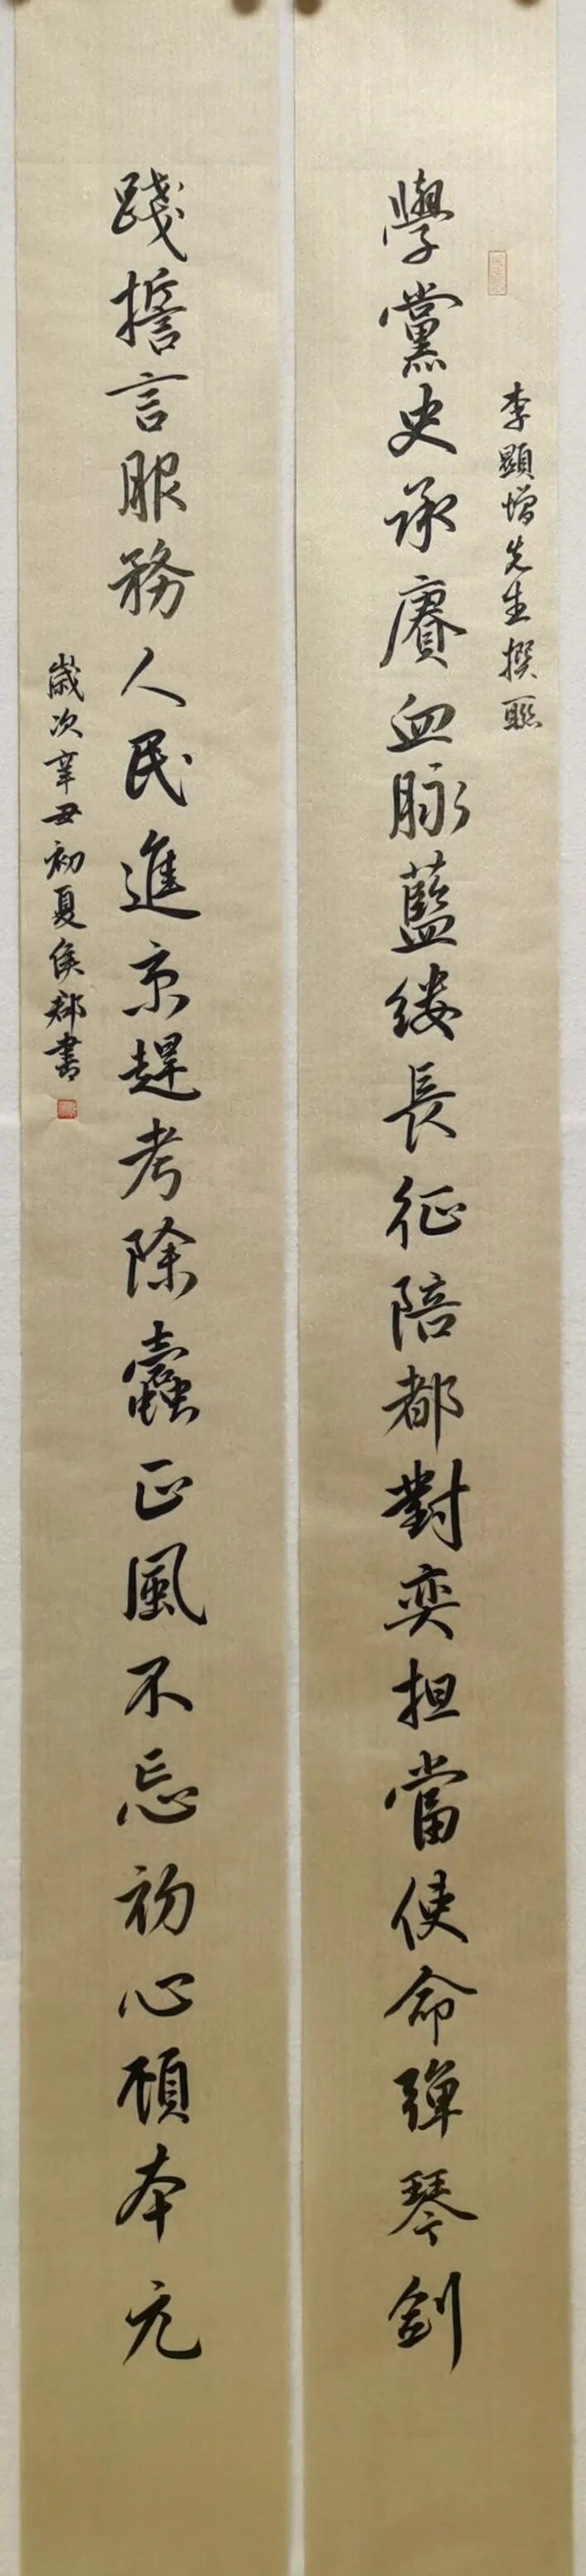 李顯增先生撰聯
學黨史承賡血脉藍縷長征陪都對奕担當使命彈琴劍
踐誓言服務人民進京趕考除蠹正風不忘初心顧本元
歲次辛丑初夏侯書